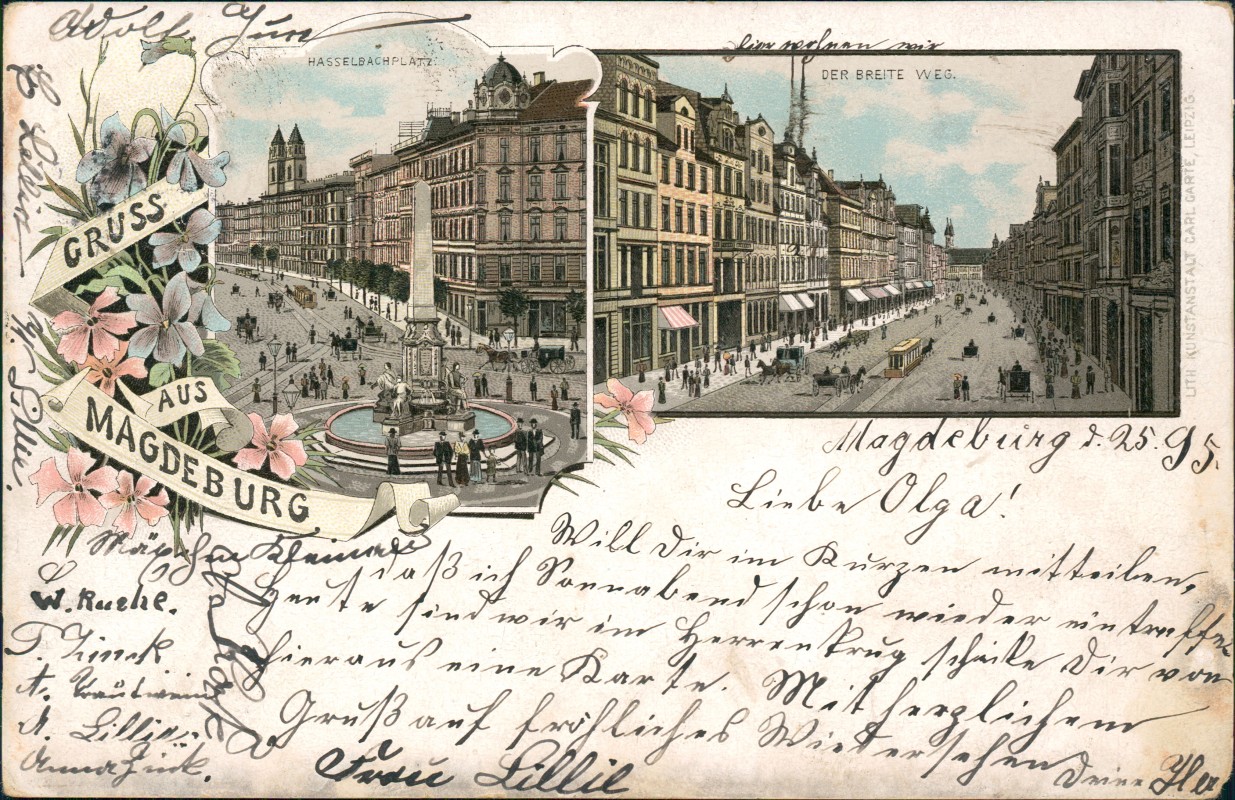 Adolf
HASSELBACHPLATZ.
hier wohnen wir
DER BREITE WEG.
GRUSS
AUS
MAGDEBURG
LITH. KUNSTANSTALT CARL GARTE, LEIPZIG.
Magdeburg d. 25. 95.
Liebe Olga!
Will Dir im Kurzen mitteilen,
daß ich Sonnabend schon wieder eintreffe
Heute sind wir im Herrenkrug schicke Dir von
hieraus eine Karte. Mit herzlichem
Gruß auf fröhliches Wiedersehen
Deine
W. Ruche.
T. Zinck
A. Trautwein
A. Lillie.
Anna Zück.
Frau Lillie